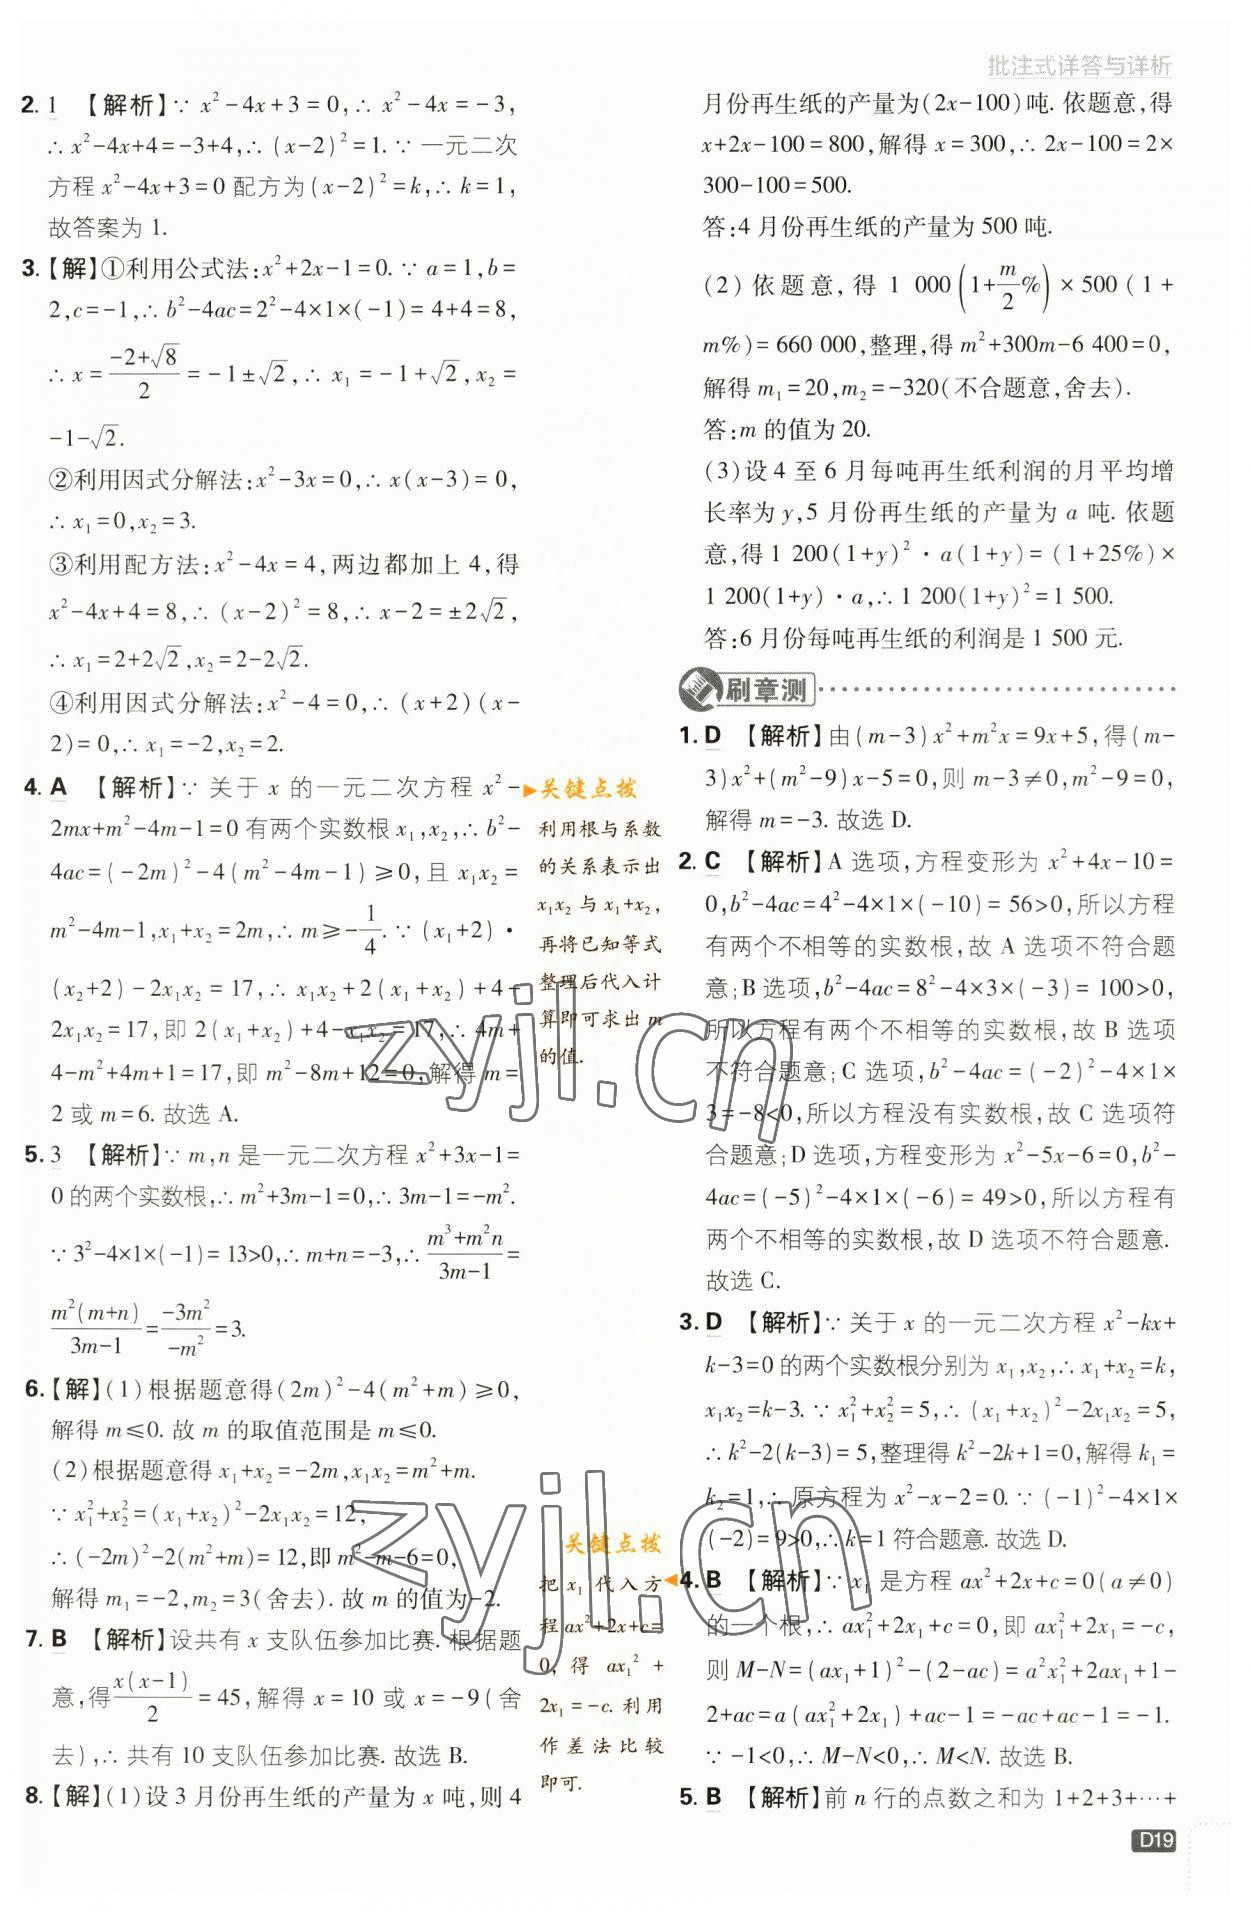 批注式详答与详析
2. 1 【解析】∵ x²-4x+3=0,∴ x²-4x=-3,
∴ x²-4x+4=-3+4,∴ (x-2)²=1. ∵ 一元二次
方程 x²-4x+3=0 配方为(x-2)²=k,∴ k=1,
故答案为 1.
3.【解】①利用公式法:x²+2x-1=0. ∵ a=1,b=
2,c=-1,∴ b²-4ac=2²-4×1×(-1)=4+4=8,
∴ x=(-2+√8)/2=-1±√2,∴ x₁=-1+√2,x₂=
-1-√2.
②利用因式分解法:x²-3x=0,∴ x(x-3)=0,
∴ x₁=0,x₂=3.
③利用配方法:x²-4x=4,两边都加上 4,得
x²-4x+4=8,∴ (x-2)²=8,∴ x-2=±2√2,
∴ x₁=2+2√2,x₂=2-2√2.
④利用因式分解法:x²-4=0,∴ (x+2)(x-
2)=0,∴ x₁=-2,x₂=2.
4. A 【解析】∵ 关于 x 的一元二次方程 x²-
2mx+m²-4m-1=0 有两个实数根 x₁,x₂,∴ b²-
4ac=(-2m)²-4(m²-4m-1)≥0,且 x₁x₂=
m²-4m-1,x₁+x₂=2m,∴ m≥-1/4. ∵ (x₁+2)·
(x₂+2)-2x₁x₂=17,∴ x₁x₂+2(x₁+x₂)+4-
2x₁x₂=17,即 2(x₁+x₂)+4-x₁x₂=17,∴ 4m+
4-m²+4m+1=17,即 m²-8m+12=0,解得 m=
2 或 m=6. 故选 A.
5. 3 【解析】∵ m,n 是一元二次方程 x²+3x-1=
0 的两个实数根,∴ m²+3m-1=0,∴ 3m-1=-m².
∵ 3²-4×1×(-1)=13>0,∴ m+n=-3,∴ (m³+m²n)/(3m-1)=
m²(m+n)/(3m-1)=-3m²/-m²=3.
6.【解】(1)根据题意得(2m)²-4(m²+m)≥0,
解得 m≤0. 故 m 的取值范围是 m≤0.
(2)根据题意得 x₁+x₂=-2m,x₁x₂=m²+m.
∵ x₁²+x₂²=(x₁+x₂)²-2x₁x₂=12,
∴ (-2m)²-2(m²+m)=12,即 m²-m-6=0,
解得 m₁=-2,m₂=3(舍去). 故 m 的值为-2.
7. B 【解析】设共有 x 支队伍参加比赛. 根据题
意,得x(x-1)/2=45,解得 x=10 或 x=-9(舍
去),∴ 共有 10 支队伍参加比赛. 故选 B.
8.【解】(1)设 3 月份再生纸的产量为 x 吨,则 4
关键点拨
利用根与系数
的关系表示出
x₁x₂ 与 x₁+x₂,
再将已知等式
整理后代入计
算即可求出 m
的值.
关键点拨
把 x₁ 代入方
程ax²+2x+c=
0, 得 ax₁²+
2x₁=-c. 利用
作差法比较
即可.
月份再生纸的产量为(2x-100)吨. 依题意,得
x+2x-100=800,解得 x=300,∴ 2x-100=2×
300-100=500.
答:4 月份再生纸的产量为 500 吨.
(2)依题意,得 1 000(1+m/2%)×500(1+
m%)=660 000,整理,得 m²+300m-6 400=0,
解得 m₁=20,m₂=-320(不合题意,舍去).
答:m 的值为 20.
(3)设 4 至 6 月每吨再生纸利润的月平均增
长率为 y,5 月份再生纸的产量为 a 吨. 依题
意,得 1 200(1+y)²·a(1+y)=(1+25%)×
1 200(1+y)·a,∴ 1 200(1+y)²=1 500.
答:6 月份每吨再生纸的利润是 1 500 元.
刷章测
1. D 【解析】由(m-3)x²+m²x=9x+5,得(m-
3)x²+(m²-9)x-5=0,则 m-3≠0,m²-9=0,
解得 m=-3. 故选 D.
2. C 【解析】A 选项,方程变形为 x²+4x-10=
0,b²-4ac=4²-4×1×(-10)=56>0,所以方程
有两个不相等的实数根,故 A 选项不符合题
意;B 选项,b²-4ac=8²-4×3×(-3)=100>0,
所以方程有两个不相等的实数根,故 B 选项
不符合题意;C 选项,b²-4ac=(-2)²-4×1×
3=-8<0,所以方程没有实数根,故 C 选项符
合题意;D 选项,方程变形为 x²-5x-6=0,b²-
4ac=(-5)²-4×1×(-6)=49>0,所以方程有
两个不相等的实数根,故 D 选项不符合题意.
故选 C.
3. D 【解析】∵ 关于 x 的一元二次方程 x²-kx+
k-3=0 的两个实数根分别为 x₁,x₂,∴ x₁+x₂=k,
x₁x₂=k-3. ∵ x₁²+x₂²=5,∴ (x₁+x₂)²-2x₁x₂=5,
∴ k²-2(k-3)=5,整理得 k²-2k+1=0,解得 k₁=
k₂=1,∴ 原方程为 x²-x-2=0. ∵ (-1)²-4×1×
(-2)=9>0,∴ k=1 符合题意. 故选 D.
4. B 【解析】∵ x₁ 是方程 ax²+2x+c=0(a≠0)
的一个根,∴ ax₁²+2x₁+c=0,即 ax₁²+2x₁=-c,
则 M-N=(ax₁+1)²-(2-ac)=a²x₁²+2ax₁+1-
2+ac=a(ax₁²+2x₁)+ac-1=-ac+ac-1=-1.
∵ -1<0,∴ M-N<0,∴ M<N. 故选 B.
5. B 【解析】前 n 行的点数之和为 1+2+3+…+
D19
zyjl.cn
zyjl.cn